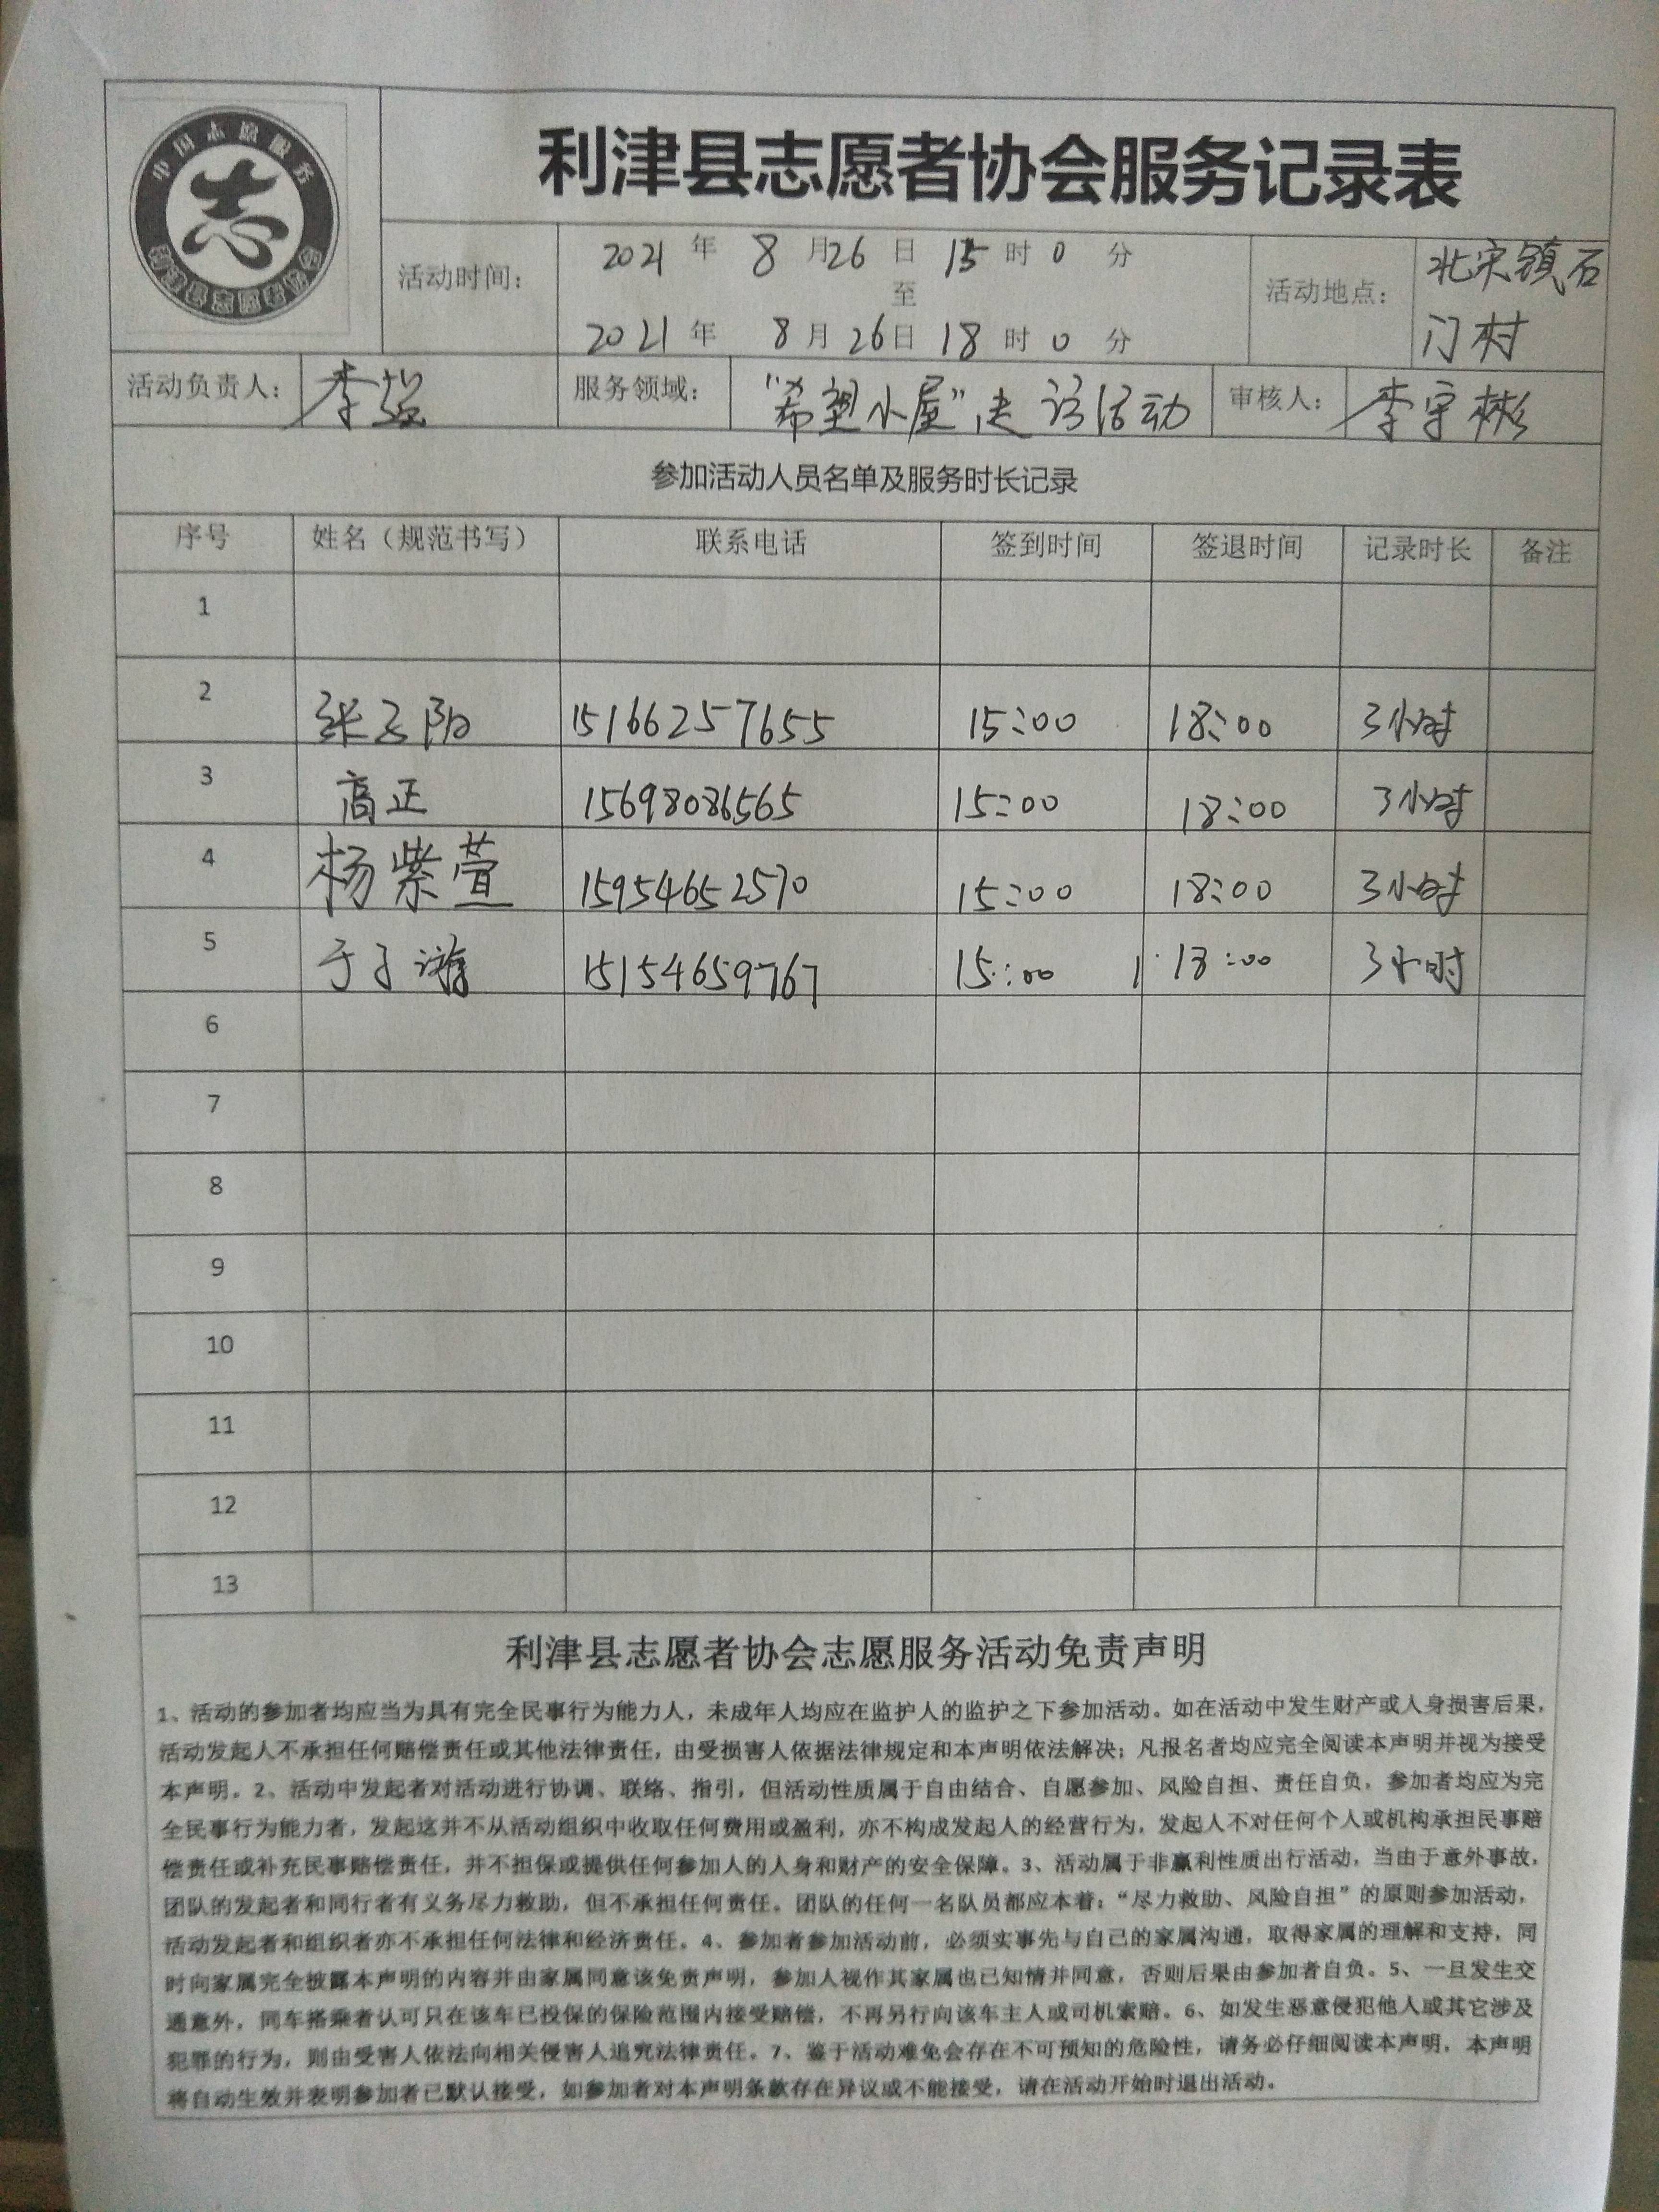 中国志愿服务
志
利津县志愿者协会服务记录表
活动时间： 2021 年 8 月 26 日 15 时 0 分
至
2021 年 8 月 26 日 18 时 0 分
活动地点： 北宋镇石
门村
活动负责人： 李强 服务领域： “希望小屋”走访活动 审核人： 李宇彬
参加活动人员名单及服务时长记录
序号 姓名（规范书写） 联系电话 签到时间 签退时间 记录时长 备注
1
2 张云阳 15166257655 15:00 18:00 3小时
3 高正 15698086565 15:00 18:00 3小时
4 杨紫萱 15954652570 15:00 18:00 3小时
5 于子游 15154659767 15:00 18:00 3小时
6
7
8
9
10
11
12
13
利津县志愿者协会志愿服务活动免责声明
1、活动的参加者均应当为具有完全民事行为能力人，未成年人均应在监护人的监护之下参加活动。如在活动中发生财产或人身损害后果，
活动发起人不承担任何赔偿责任或其他法律责任，由受损害人依据法律规定和本声明依法解决；凡报名者均应完全阅读本声明并视为接受
本声明。2、活动中发起者对活动进行协调、联络、指引，但活动性质属于自由结合、自愿参加、风险自担、责任自负，参加者均应为完
全民事行为能力者，发起这并不从活动组织中收取任何费用或盈利，亦不构成发起人的经营行为，发起人不对任何个人或机构承担民事赔
偿责任或补充民事赔偿责任，并不担保或提供任何参加人的人身和财产的安全保障。3、活动属于非赢利性质出行活动，当由于意外事故，
团队的发起者和同行者有义务尽力救助，但不承担任何责任。团队的任何一名队员都应本着：“尽力救助、风险自担”的原则参加活动，
活动发起者和组织者亦不承担任何法律和经济责任。4、参加者参加活动前，必须实事先与自己的家属沟通，取得家属的理解和支持，同
时向家属完全披露本声明的内容并由家属同意该免责声明，参加人视作其家属也已知情并同意，否则后果由参加者自负。5、一旦发生交
通意外，同车搭乘者认可只在该车已投保的保险范围内接受赔偿，不再另行向该车主人或司机索赔。6、如发生恶意侵犯他人或其它涉及
犯罪的行为，则由受害人依法向相关侵害人追究法律责任。7、鉴于活动难免会存在不可预知的危险性，请务必仔细阅读本声明，本声明
将自动生效并表明参加者已默认接受，如参加者对本声明条款存在异议或不能接受，请在活动开始时退出活动。